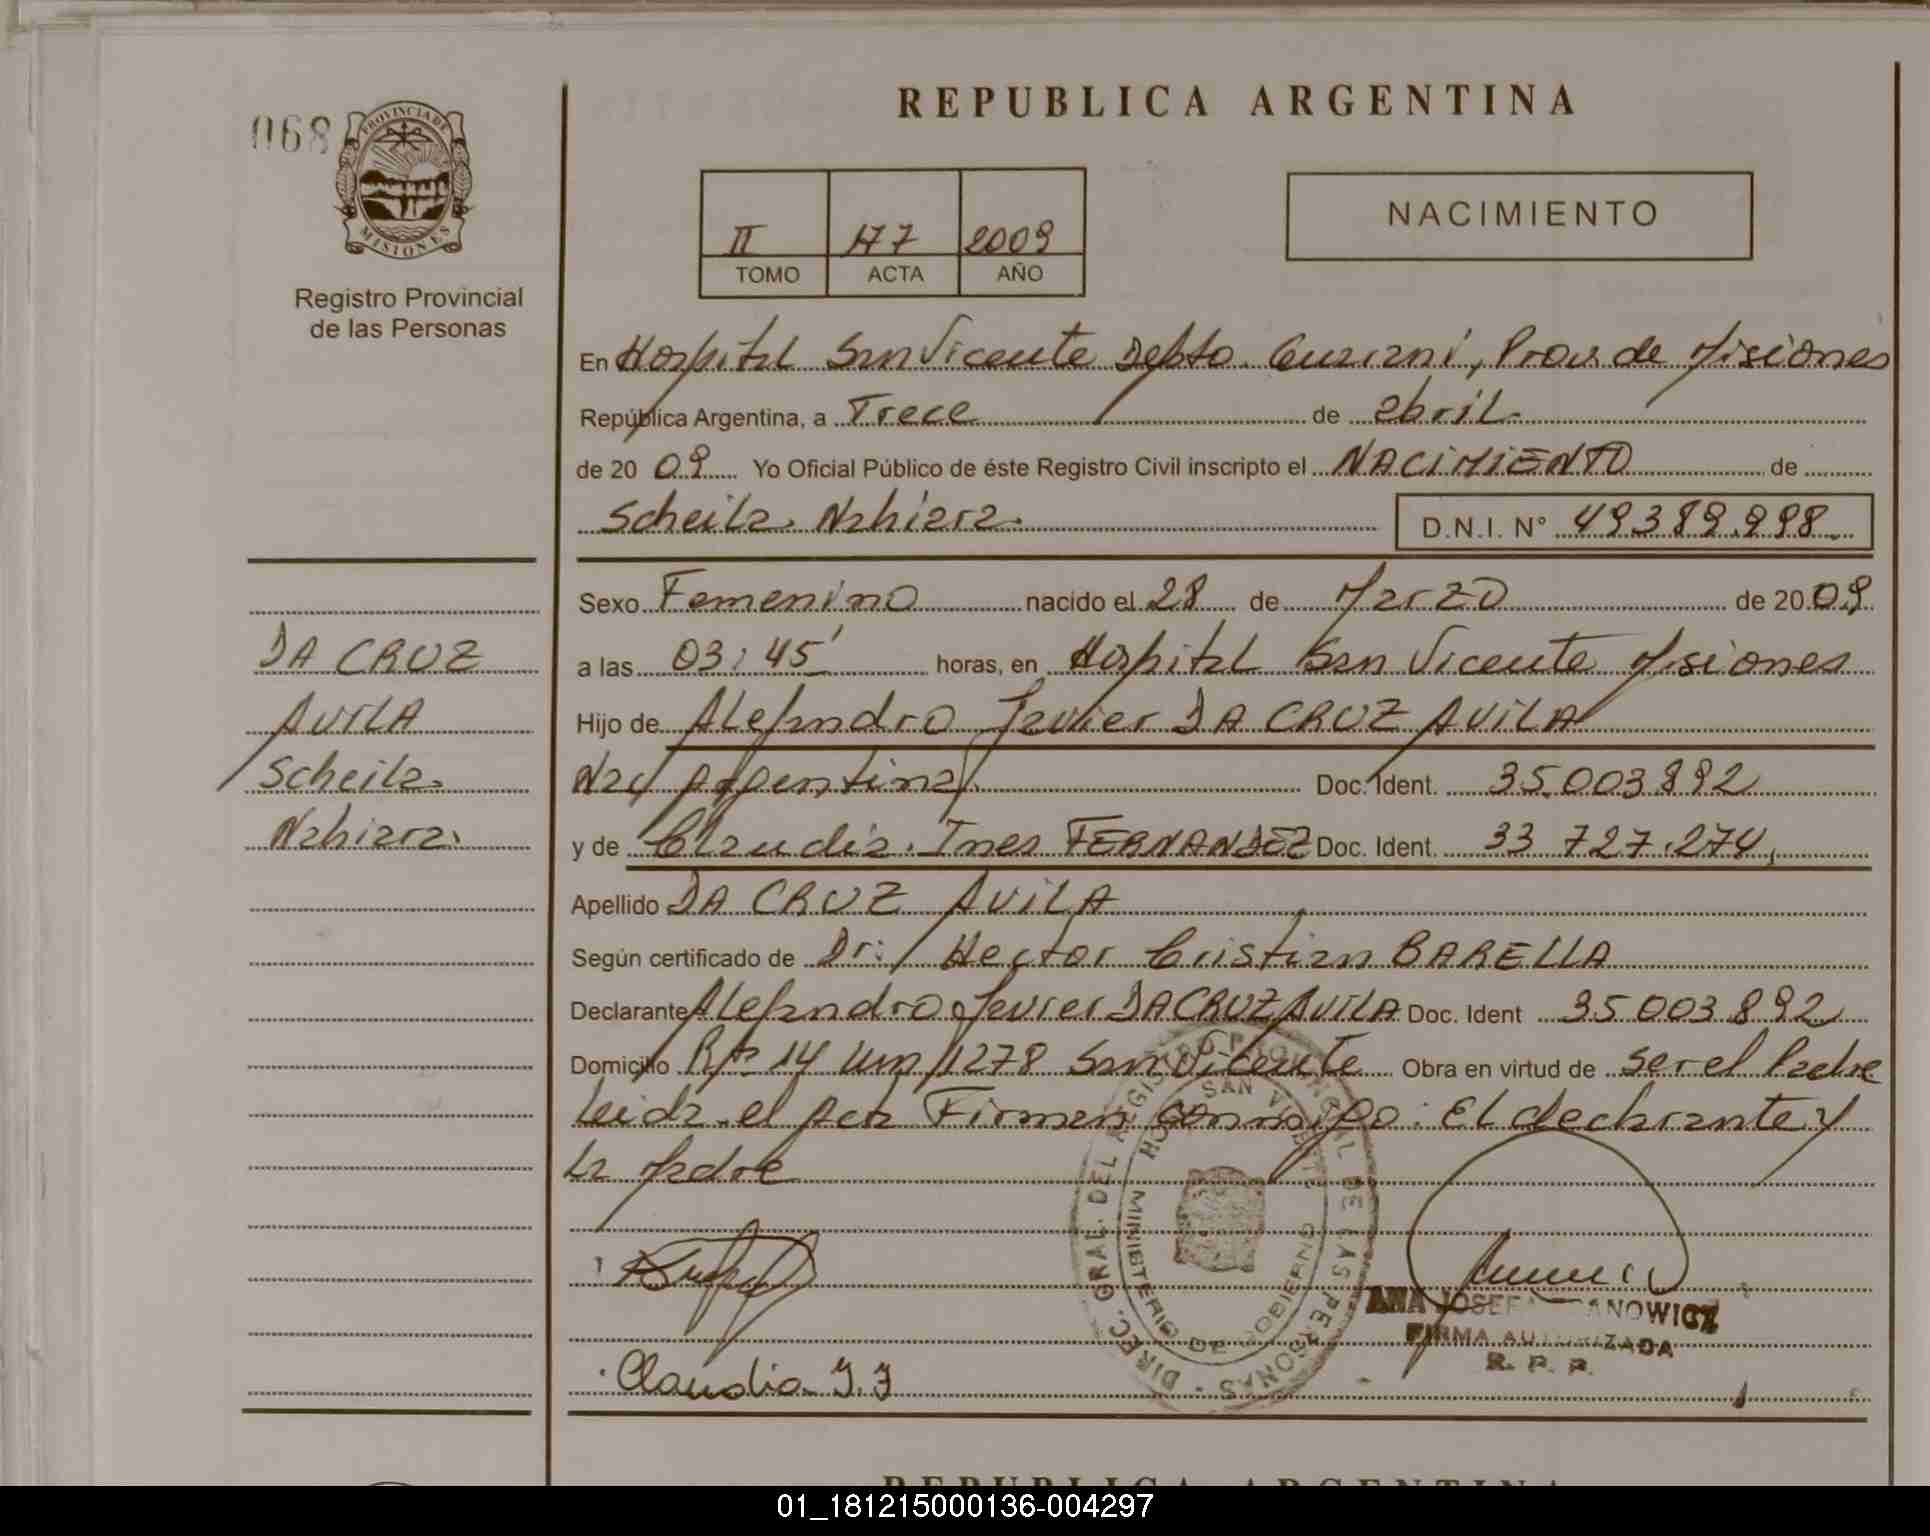 REPUBLICA ARGENTINA
068
PROVINCIA DE
MISIONES
Registro Provincial
de las Personas
II 177 2009
TOMO ACTA AÑO
NACIMIENTO
En Hospital San Vicente Depto. Guarani, Prov. de Misiones
República Argentina, a Trece de abril
de 20 09 Yo Oficial Público de éste Registro Civil inscripto el NACIMIENTO de
Scheila Nahiara D.N.I. N° 49389.998
Sexo Femenino nacido el 28 de Marzo de 20 09
a las 03:45' horas, en Hospital San Vicente Misiones
Hijo de Alejandro Javier DA CRUZ AVILA
Nac Argentina Doc. Ident. 35.003.892
y de Claudia Ines FERNANDEZ Doc. Ident. 33 727.274
Apellido DA CRUZ AVILA
Según certificado de Dr: Hector Cristian BARELLA
Declarante Alejandro Javier DA CRUZ AVILA Doc. Ident 35 003 892
Domicilio Rta 14 Km 1278 San Vicente Obra en virtud de ser el Padre
Leida el Acta Firman conmigo: El declarante y
La Madre
DA CRUZ
AVILA
Scheila
Nahiara
DIREC. GRAL. DEL REGISTRO PROVINCIAL DE LAS PERSONAS
HOSP. SAN VICENTE
MINISTERIO DE GOBIERNO
ANA JOSEFA
FIRMA AUTORIZADA
R. P. P.
Claudia I. F
REPUBLICA ARGENTINA
01_181215000136-004297